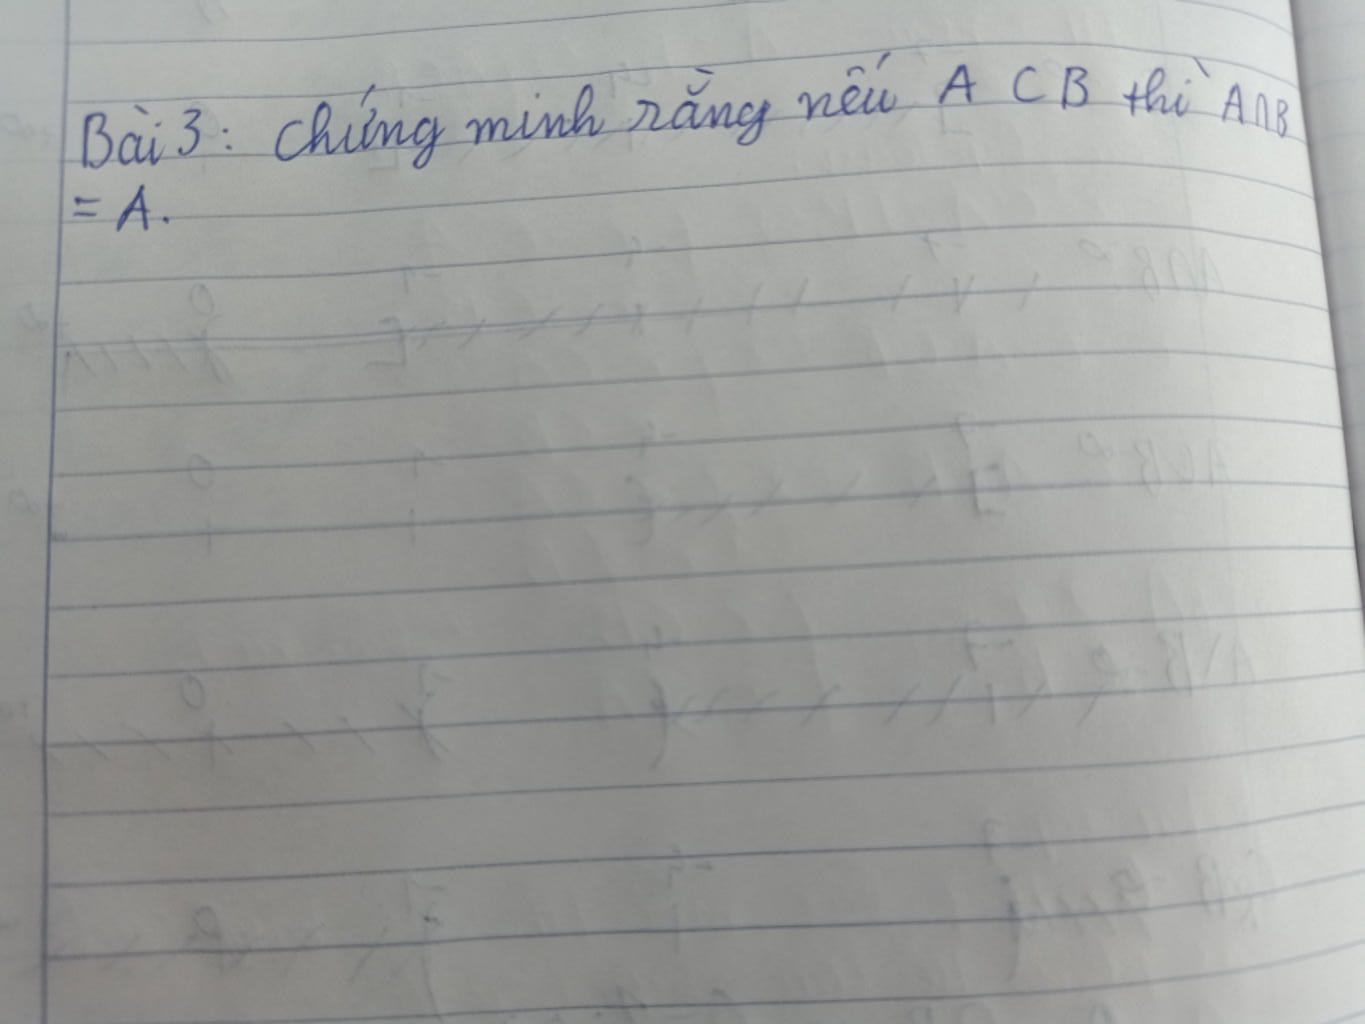 Bài 3: Chứng minh rằng nếu A ⊂ B thì A∩B
= A.